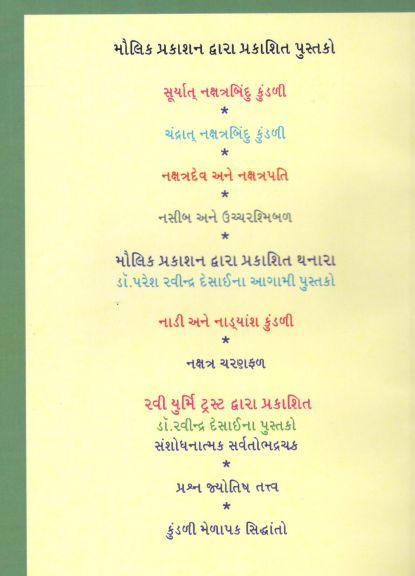 મૌલિક પ્રકાશન દ્વારા પ્રકાશિત પુસ્તકો
સૂર્યાત્ નક્ષત્રબિંદુ કુંડળી
*
ચંદ્રાત્ નક્ષત્રબિંદુ કુંડળી
*
નક્ષત્રદેવ અને નક્ષત્રપતિ
*
નસીબ અને ઉચ્ચરશ્મિબળ
*
મૌલિક પ્રકાશન દ્વારા પ્રકાશિત થનારા
ડૉ.પરેશ રવીન્દ્ર દેસાઈના આગામી પુસ્તકો
નાડી અને નાડ્યાંશ કુંડળી
*
નક્ષત્ર ચરણફળ
રવી યુર્મિ ટ્રસ્ટ દ્વારા પ્રકાશિત
ડૉ.રવીન્દ્ર દેસાઈના પુસ્તકો
સંશોધનાત્મક સર્વતોભદ્રચક
*
પ્રશ્ન જ્યોતિષ તત્ત્વ
*
કુંડળી મેળાપક સિદ્ધાંતો